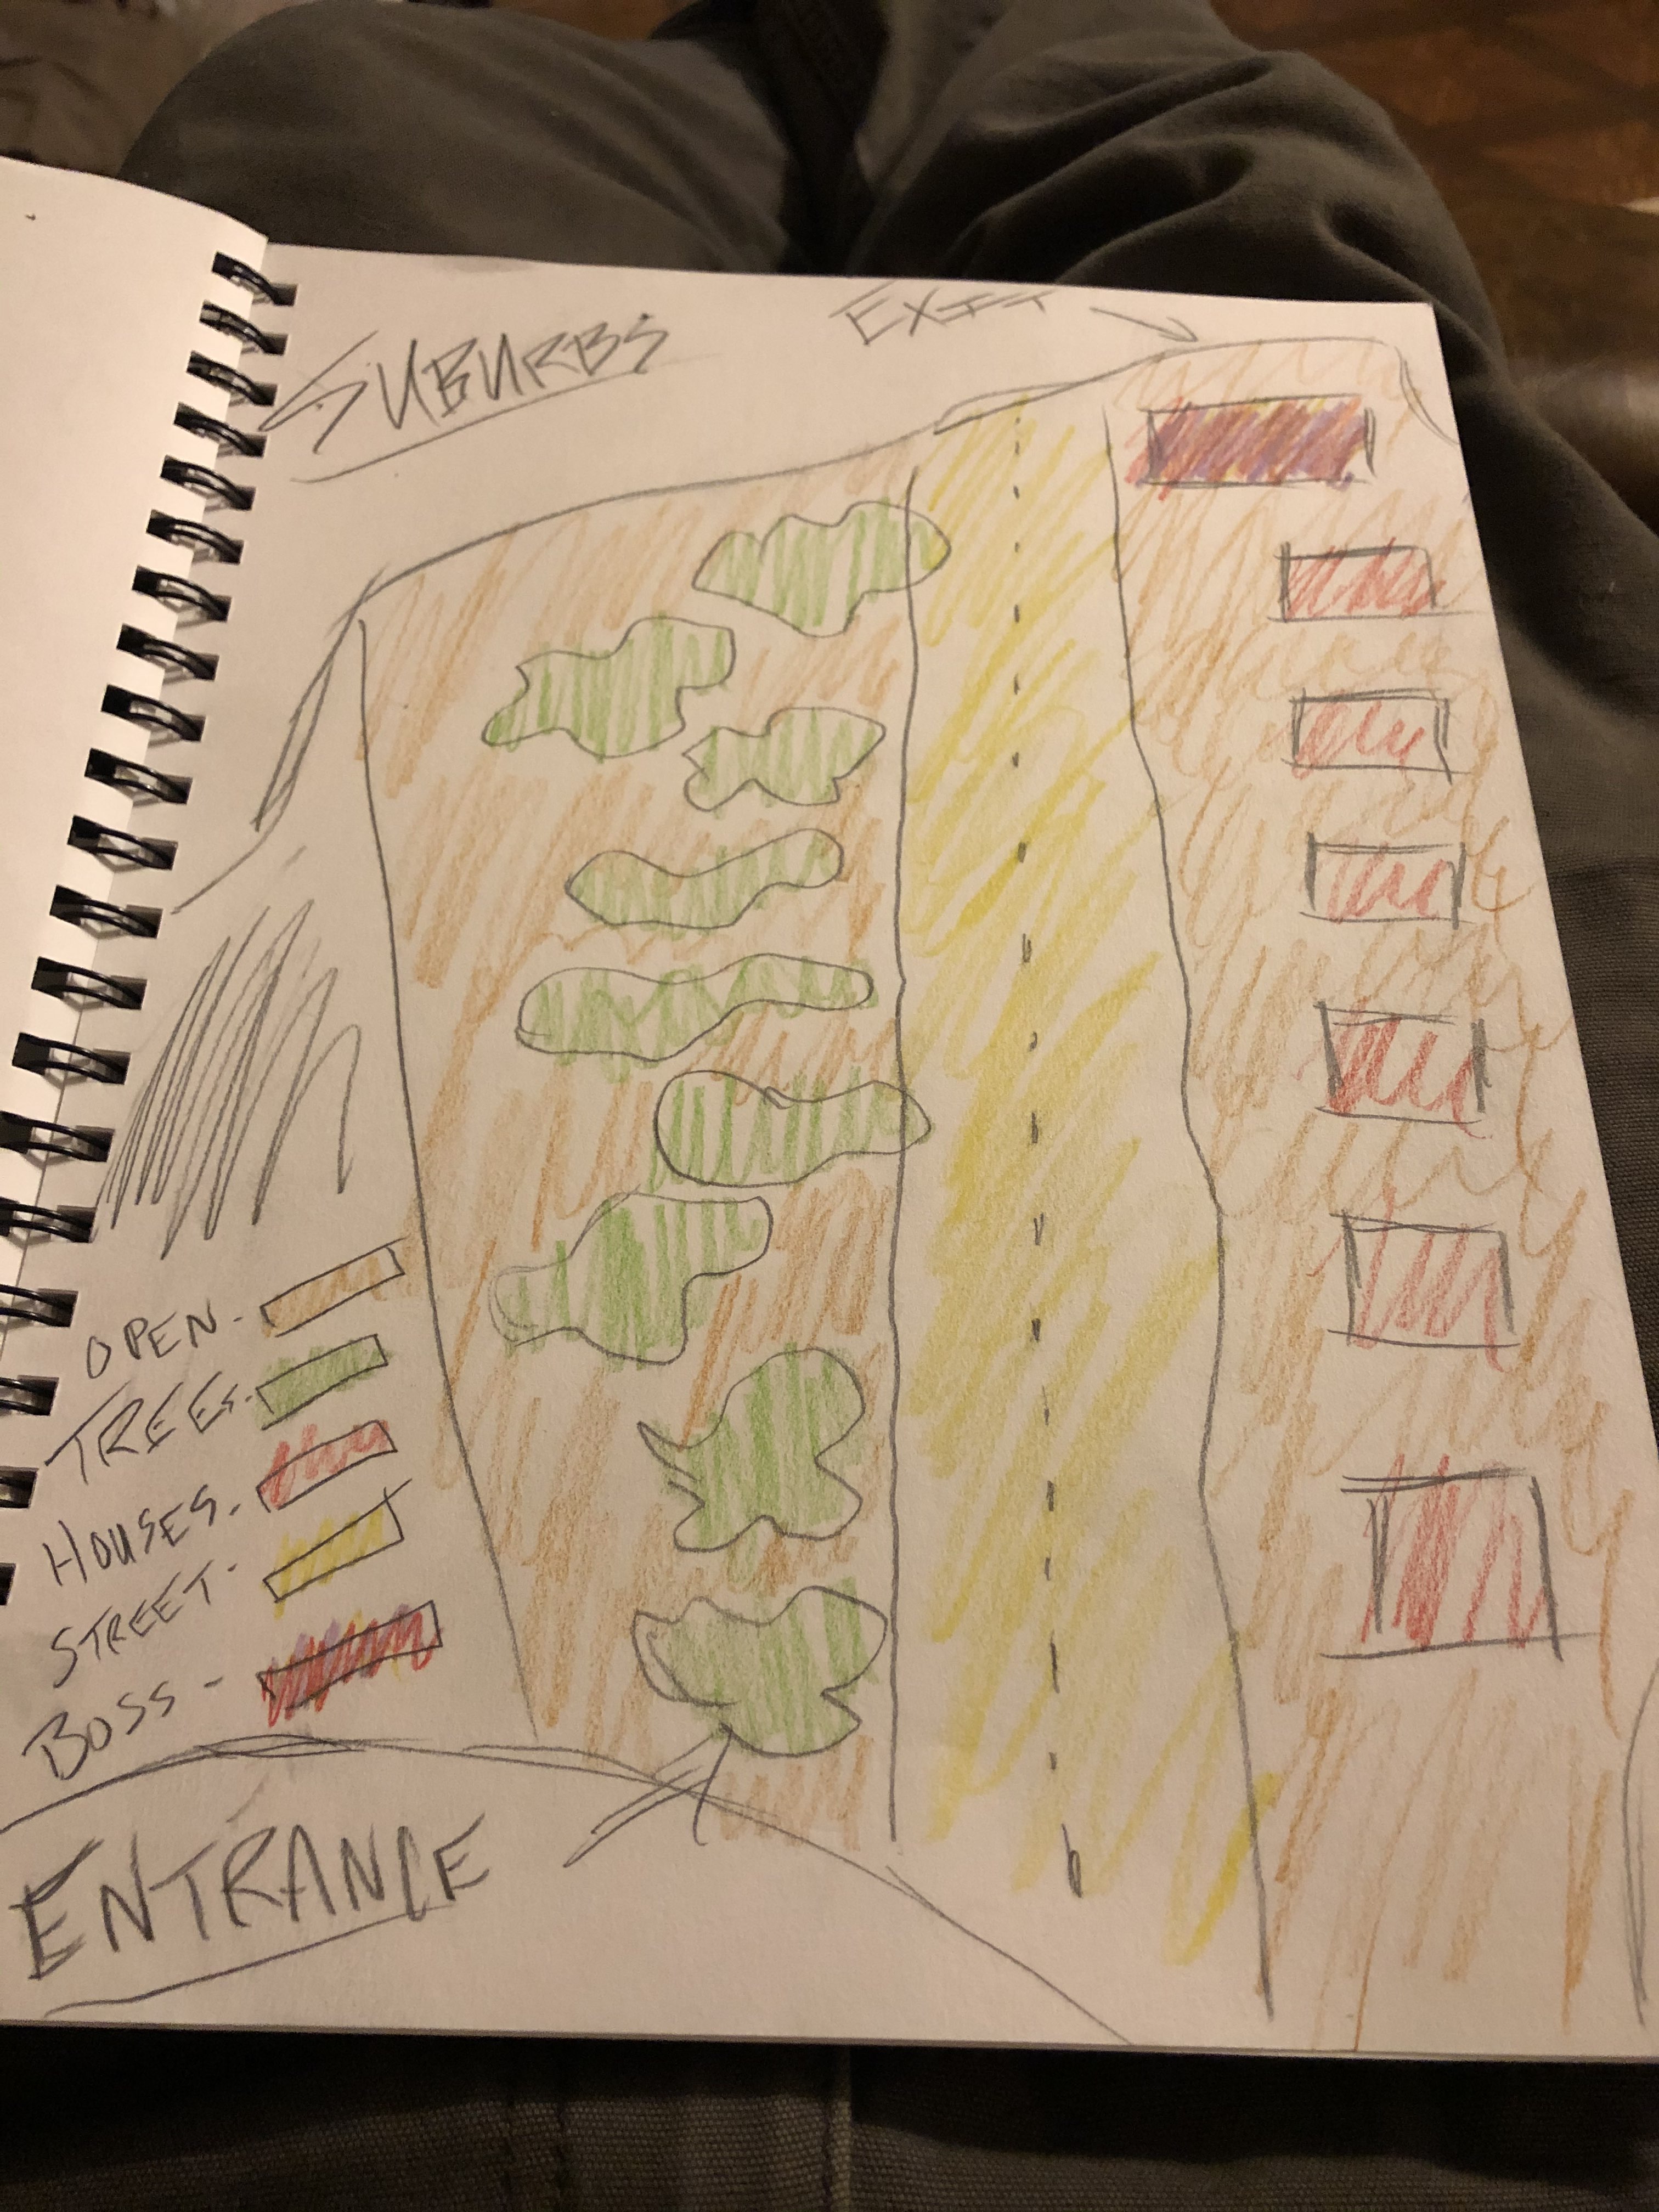 SUBURBS
EXIT
OPEN -
TREES -
HOUSES -
STREET -
BOSS -
ENTRANCE